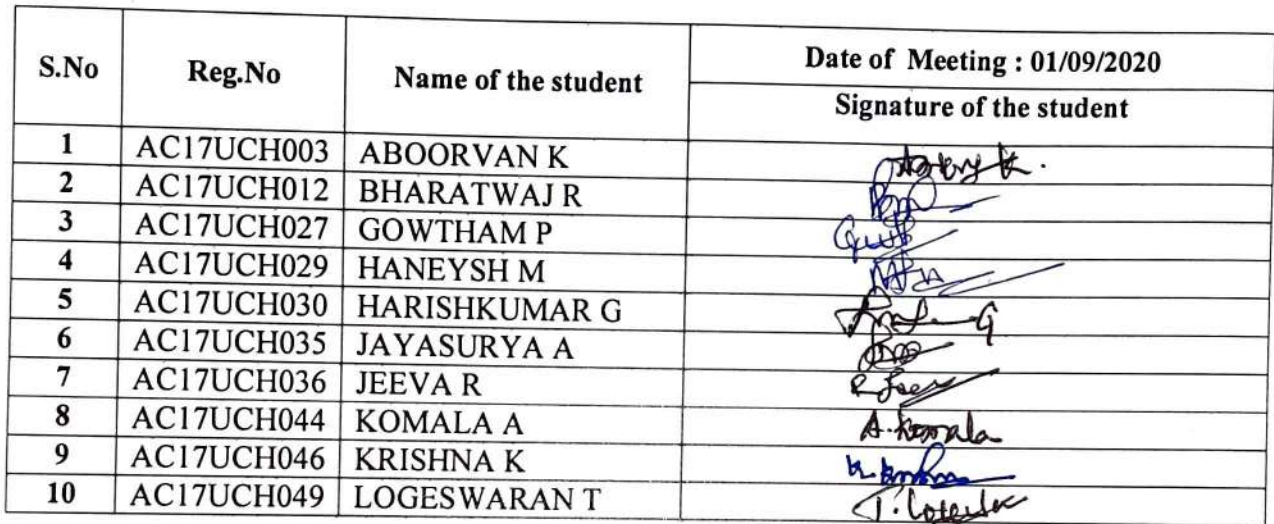 S.No Reg.No Name of the student Date of Meeting : 01/09/2020
Signature of the student
1 AC17UCH003 ABOORVAN K
2 AC17UCH012 BHARATWAJ R
3 AC17UCH027 GOWTHAM P
4 AC17UCH029 HANEYSH M
5 AC17UCH030 HARISHKUMAR G
6 AC17UCH035 JAYASURYA A
7 AC17UCH036 JEEVA R
8 AC17UCH044 KOMALA A A. Komala
9 AC17UCH046 KRISHNA K
10 AC17UCH049 LOGESWARAN T